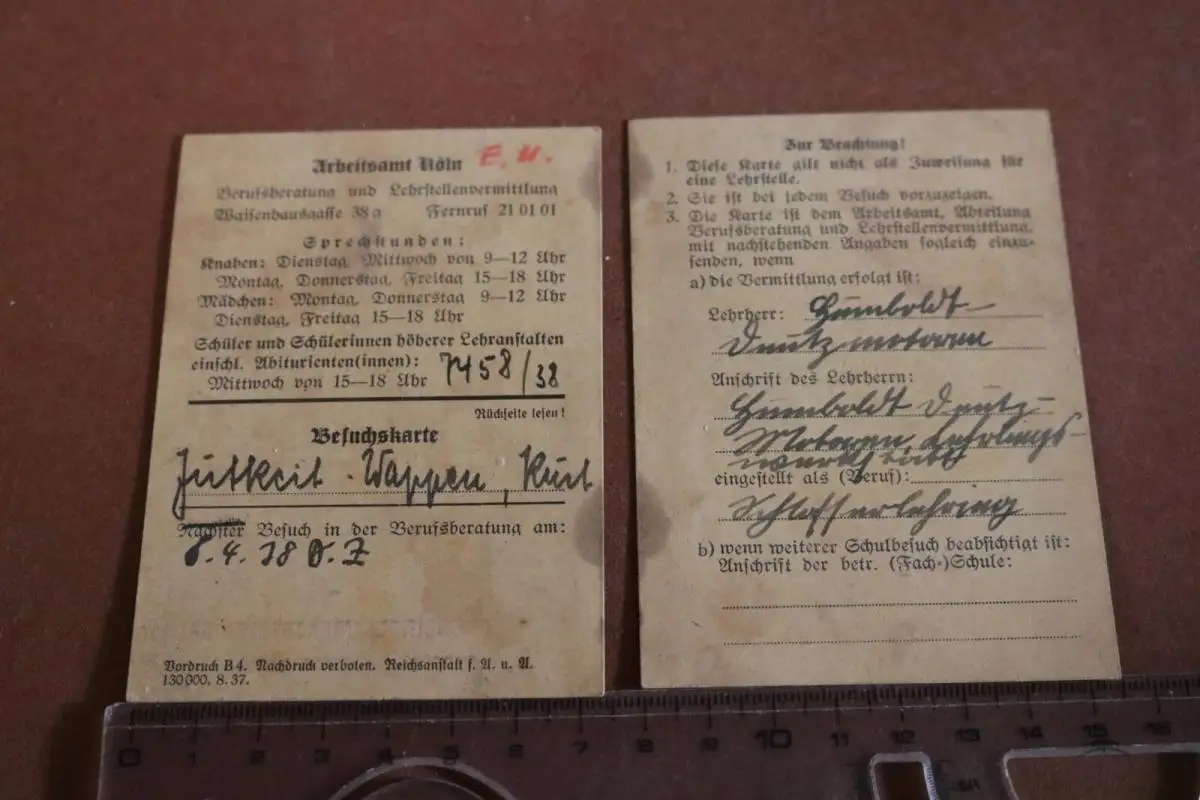 Arbeitsamt Köln E. U.
Berufsberatung und Lehrstellenvermittlung
Waisenhausgasse 38a Fernruf 21 01 01
Sprechstunden:
Knaben: Dienstag, Mittwoch von 9—12 Uhr
Montag, Donnerstag, Freitag 15—18 Uhr
Mädchen: Montag, Donnerstag 9—12 Uhr
Dienstag, Freitag 15—18 Uhr
Schüler und Schülerinnen höherer Lehranstalten
einschl. Abiturienten(innen):
Mittwoch von 15—18 Uhr 7458/38
Rückseite lesen!
Besuchskarte
Jutkeit - Wappen, Kurt
Nächster Besuch in der Berufsberatung am:
8.4.38
Vordruck B 4. Nachdruck verboten. Reichsanstalt f. A. u. A.
130 000. 8. 37.
Zur Beachtung!
1. Diese Karte gilt nicht als Zuweisung für
eine Lehrstelle.
2. Sie ist bei jedem Besuch vorzuzeigen.
3. Die Karte ist dem Arbeitsamt, Abteilung
Berufsberatung und Lehrstellenvermittlung,
mit nachstehenden Angaben sogleich einzu-
senden, wenn
a) die Vermittlung erfolgt ist:
Lehrherr: Humboldt-
Deutzmotoren
Anschrift des Lehrherrn:
Humboldt Deutz-
Motoren Lehrlings-
eingestellt als (Beruf):
Schlosserlehring
b) wenn weiterer Schulbesuch beabsichtigt ist:
Anschrift der betr. (Fach-)Schule:
0 1 2 3 4 5 6 7 8 9 10 11 12 13 14 15 16